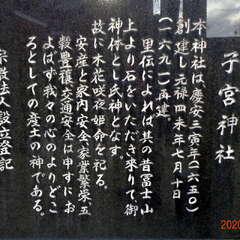 子宮神社
本神社は、慶安三寅年(一六五〇)
創建し元禄四未年七月十日
(一六九一)再建
里伝によれば其の昔富士山
上より石をいただき来りて御
神体とし氏神となす。
故に木花咲夜姫命を祀る。
安産と家内安全、家業繁栄五
穀豊穣交通安全は申すにお
よばず我々の心のよりどこ
ろとしての産土の神である。
宗教法人設立登記
2020